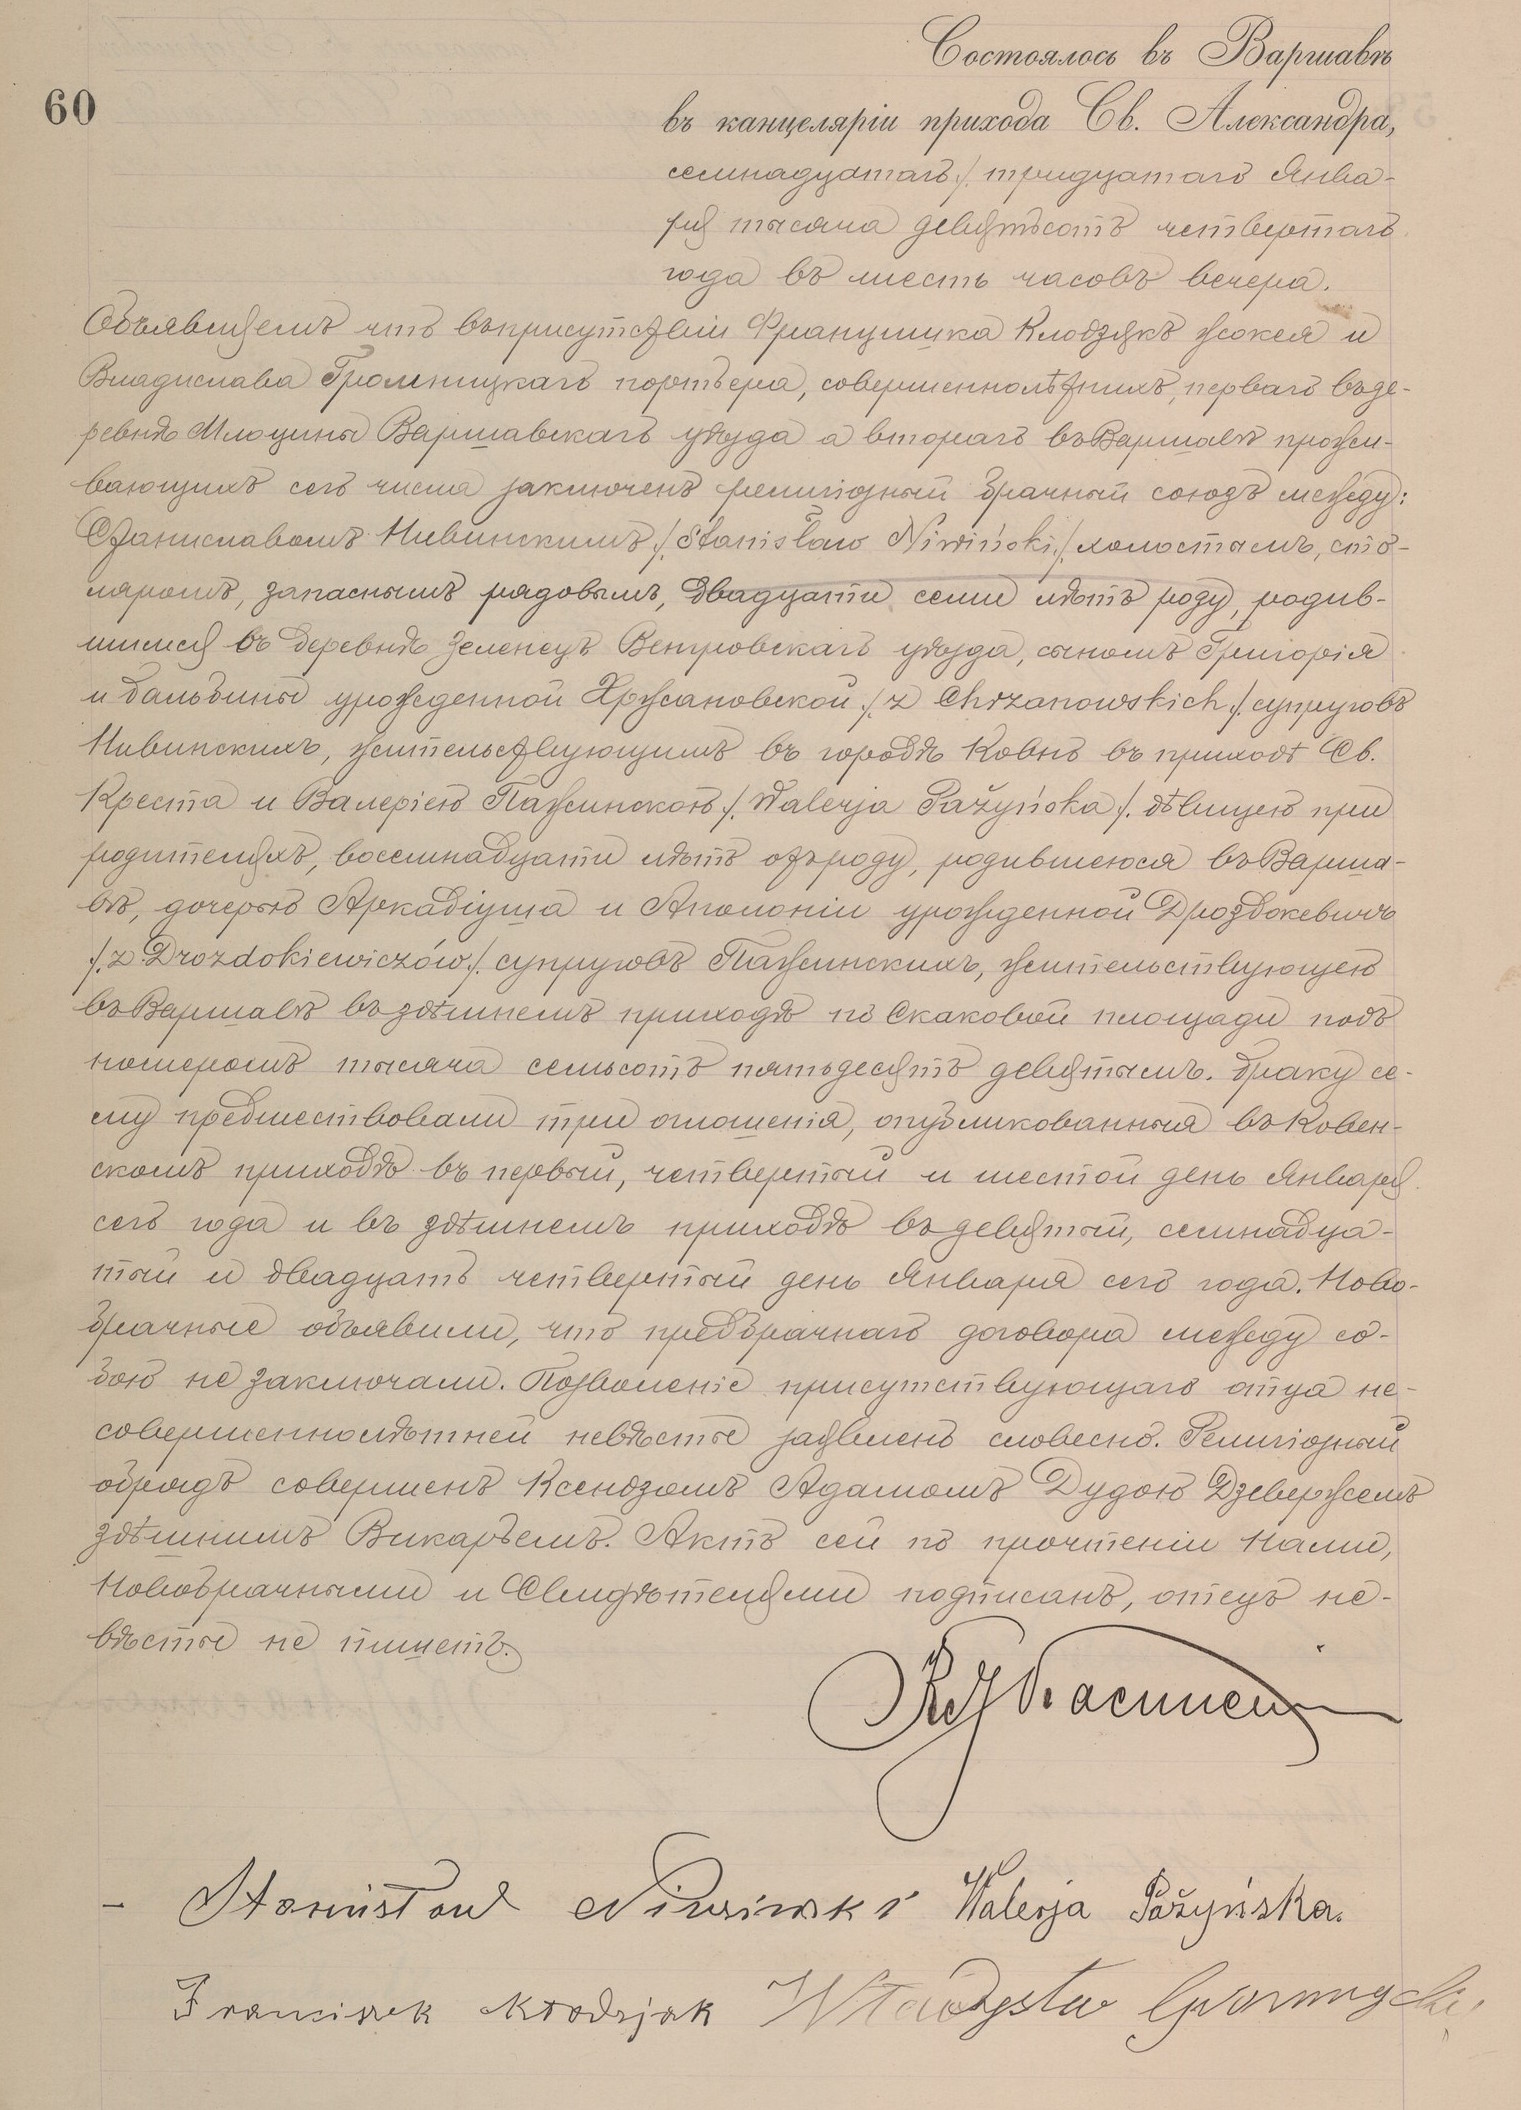 Состоялось въ Варшавѣ
60
въ канцеляріи прихода Св. Александра,
семнадцатаго /. тридцатаго Янва-
ря тысяча девятьсотъ четвертаго
года въ шесть часовъ вечера.
Объявляемъ что въ присутствіи Францишка Клодзякъ жокея и
Владислава Громницкаго портьера, совершеннолѣтнихъ, перваго въ де-
ревнѣ Млоцины Варшавскаго уѣзда а втораго въ Варшавѣ прожи-
вающихъ сего числа заключенъ религіозный брачный союзъ между:
Станиславомъ Нивинскимъ /. Stanisław Niwiński /. холостымъ, сто-
ляромъ, запаснымъ рядовымъ, двадцати семи лѣтъ роду, родив-
шимся въ деревнѣ Зеленецъ Венгровскаго уѣзда, сыномъ Григорія
и Бальбины урожденной Хржановской /. z Chrzanowskich /. супруговъ
Нивинскихъ, жительствующимъ въ городѣ Ковнѣ въ приходѣ Св.
Креста и Валеріею Пажинскою /. Walerja Pażyńska /. дѣвицею при
родителяхъ, восемнадцати лѣтъ отъ роду, родившеюся въ Варша-
вѣ, дочерью Аркадіуша и Аполоніи урожденной Дроздокевичъ
/. z Drozdokiewiczów /. супруговъ Пажинскихъ, жительствующею
въ Варшавѣ въ здѣшнемъ приходѣ по Скаковой площади подъ
номеромъ тысяча семьсотъ пятьдесятъ девятымъ. Браку се-
му предшествовали три оглошенія, опубликованныя въ Ковен-
скомъ приходѣ въ первый, четвертый и шестой день Января
сего года и въ здѣшнемъ приходѣ въ девятый, семнадца-
тый и двадцать четвертый день Января сего года. Ново-
брачные объявили, что предбрачнаго договора между со-
бою не заключали. Позволеніе присутствующаго отца не-
совершеннолѣтней невѣсты заявлено словесно. Религіозный
обрядъ совершенъ Ксендзомъ Адамомъ Дудою Дзевержемъ
здѣшнимъ Викаріемъ. Актъ сей по прочтеніи Нами,
Новобрачными и Свидѣтелями подписанъ, отецъ не-
вѣсты не пишетъ.
Stanisław Niwiński Walerja Pażyńska.
Franciszek Kłodzjak Władysław